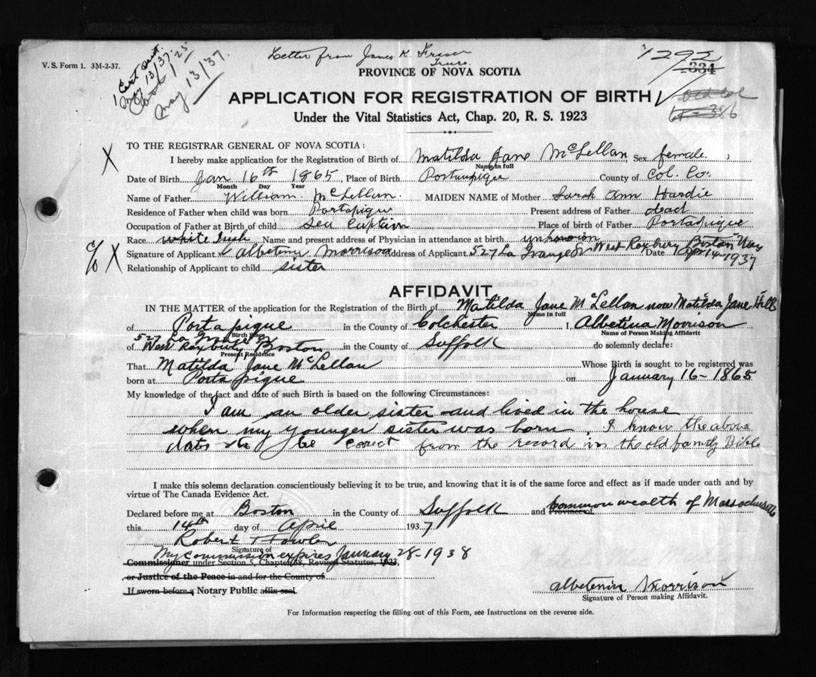 V. S. Form 1. 3M-2-37.
Letter from James K. Fraser
Truro
1292
334
May 13/37
PROVINCE OF NOVA SCOTIA
APPLICATION FOR REGISTRATION OF BIRTH
Under the Vital Statistics Act, Chap. 20, R. S. 1923
TO THE REGISTRAR GENERAL OF NOVA SCOTIA:
X I hereby make application for the Registration of Birth of Matilda Jane McLellan Sex female ;
Name in full
Date of Birth Jan 16th 1865, Place of Birth Portaupique County of Col. Co.
Month Day Year
Name of Father William McLellan MAIDEN NAME of Mother Sarah Ann Hardie
Residence of Father when child was born Portapique Present address of Father dead
Occupation of Father at Birth of child Sea Captain Place of birth of Father Portapique
Race white Name and present address of Physician in attendance at birth unknown
% X Signature of Applicant Albetina Morrison Address of Applicant 527 La Grange St West Roxbury Boston Mass Date Apr 14 1937
Relationship of Applicant to child sister
AFFIDAVIT
IN THE MATTER of the application for the Registration of the Birth of Matilda Jane McLellan now Matilda Jane Hill
Name in full
of Portapique in the County of Colchester I, Albetina Morrison
Birth Place Name of Person Making Affidavit
of 527 La Grange St West Roxbury Boston in the County of Suffolk do solemnly declare:
Present Residence
That Matilda Jane McLellan Whose Birth is sought to be registered was
born at Portapique on January 16-1865
My knowledge of the fact and date of such Birth is based on the following Circumstances:
I am an older sister and lived in the house
when my younger sister was born. I know the above
date to be correct from the record in the old family Bible
I make this solemn declaration conscientiously believing it to be true, and knowing that it is of the same force and effect as if made under oath and by
virtue of The Canada Evidence Act.
Declared before me at Boston in the County of Suffolk and Province of Commonwealth of Massachusetts
this 14th day of April 1937
Robert T Fowler
Signature of
My commission expires January 28-1938
Commissioner under Section 5, Chapter 38, Revised Statutes, 1923,
or Justice of the Peace in and for the County of
If sworn before a Notary Public affix seal
Albetina Morrison
Signature of Person making Affidavit.
For Information respecting the filling out of this Form, see Instructions on the reverse side.